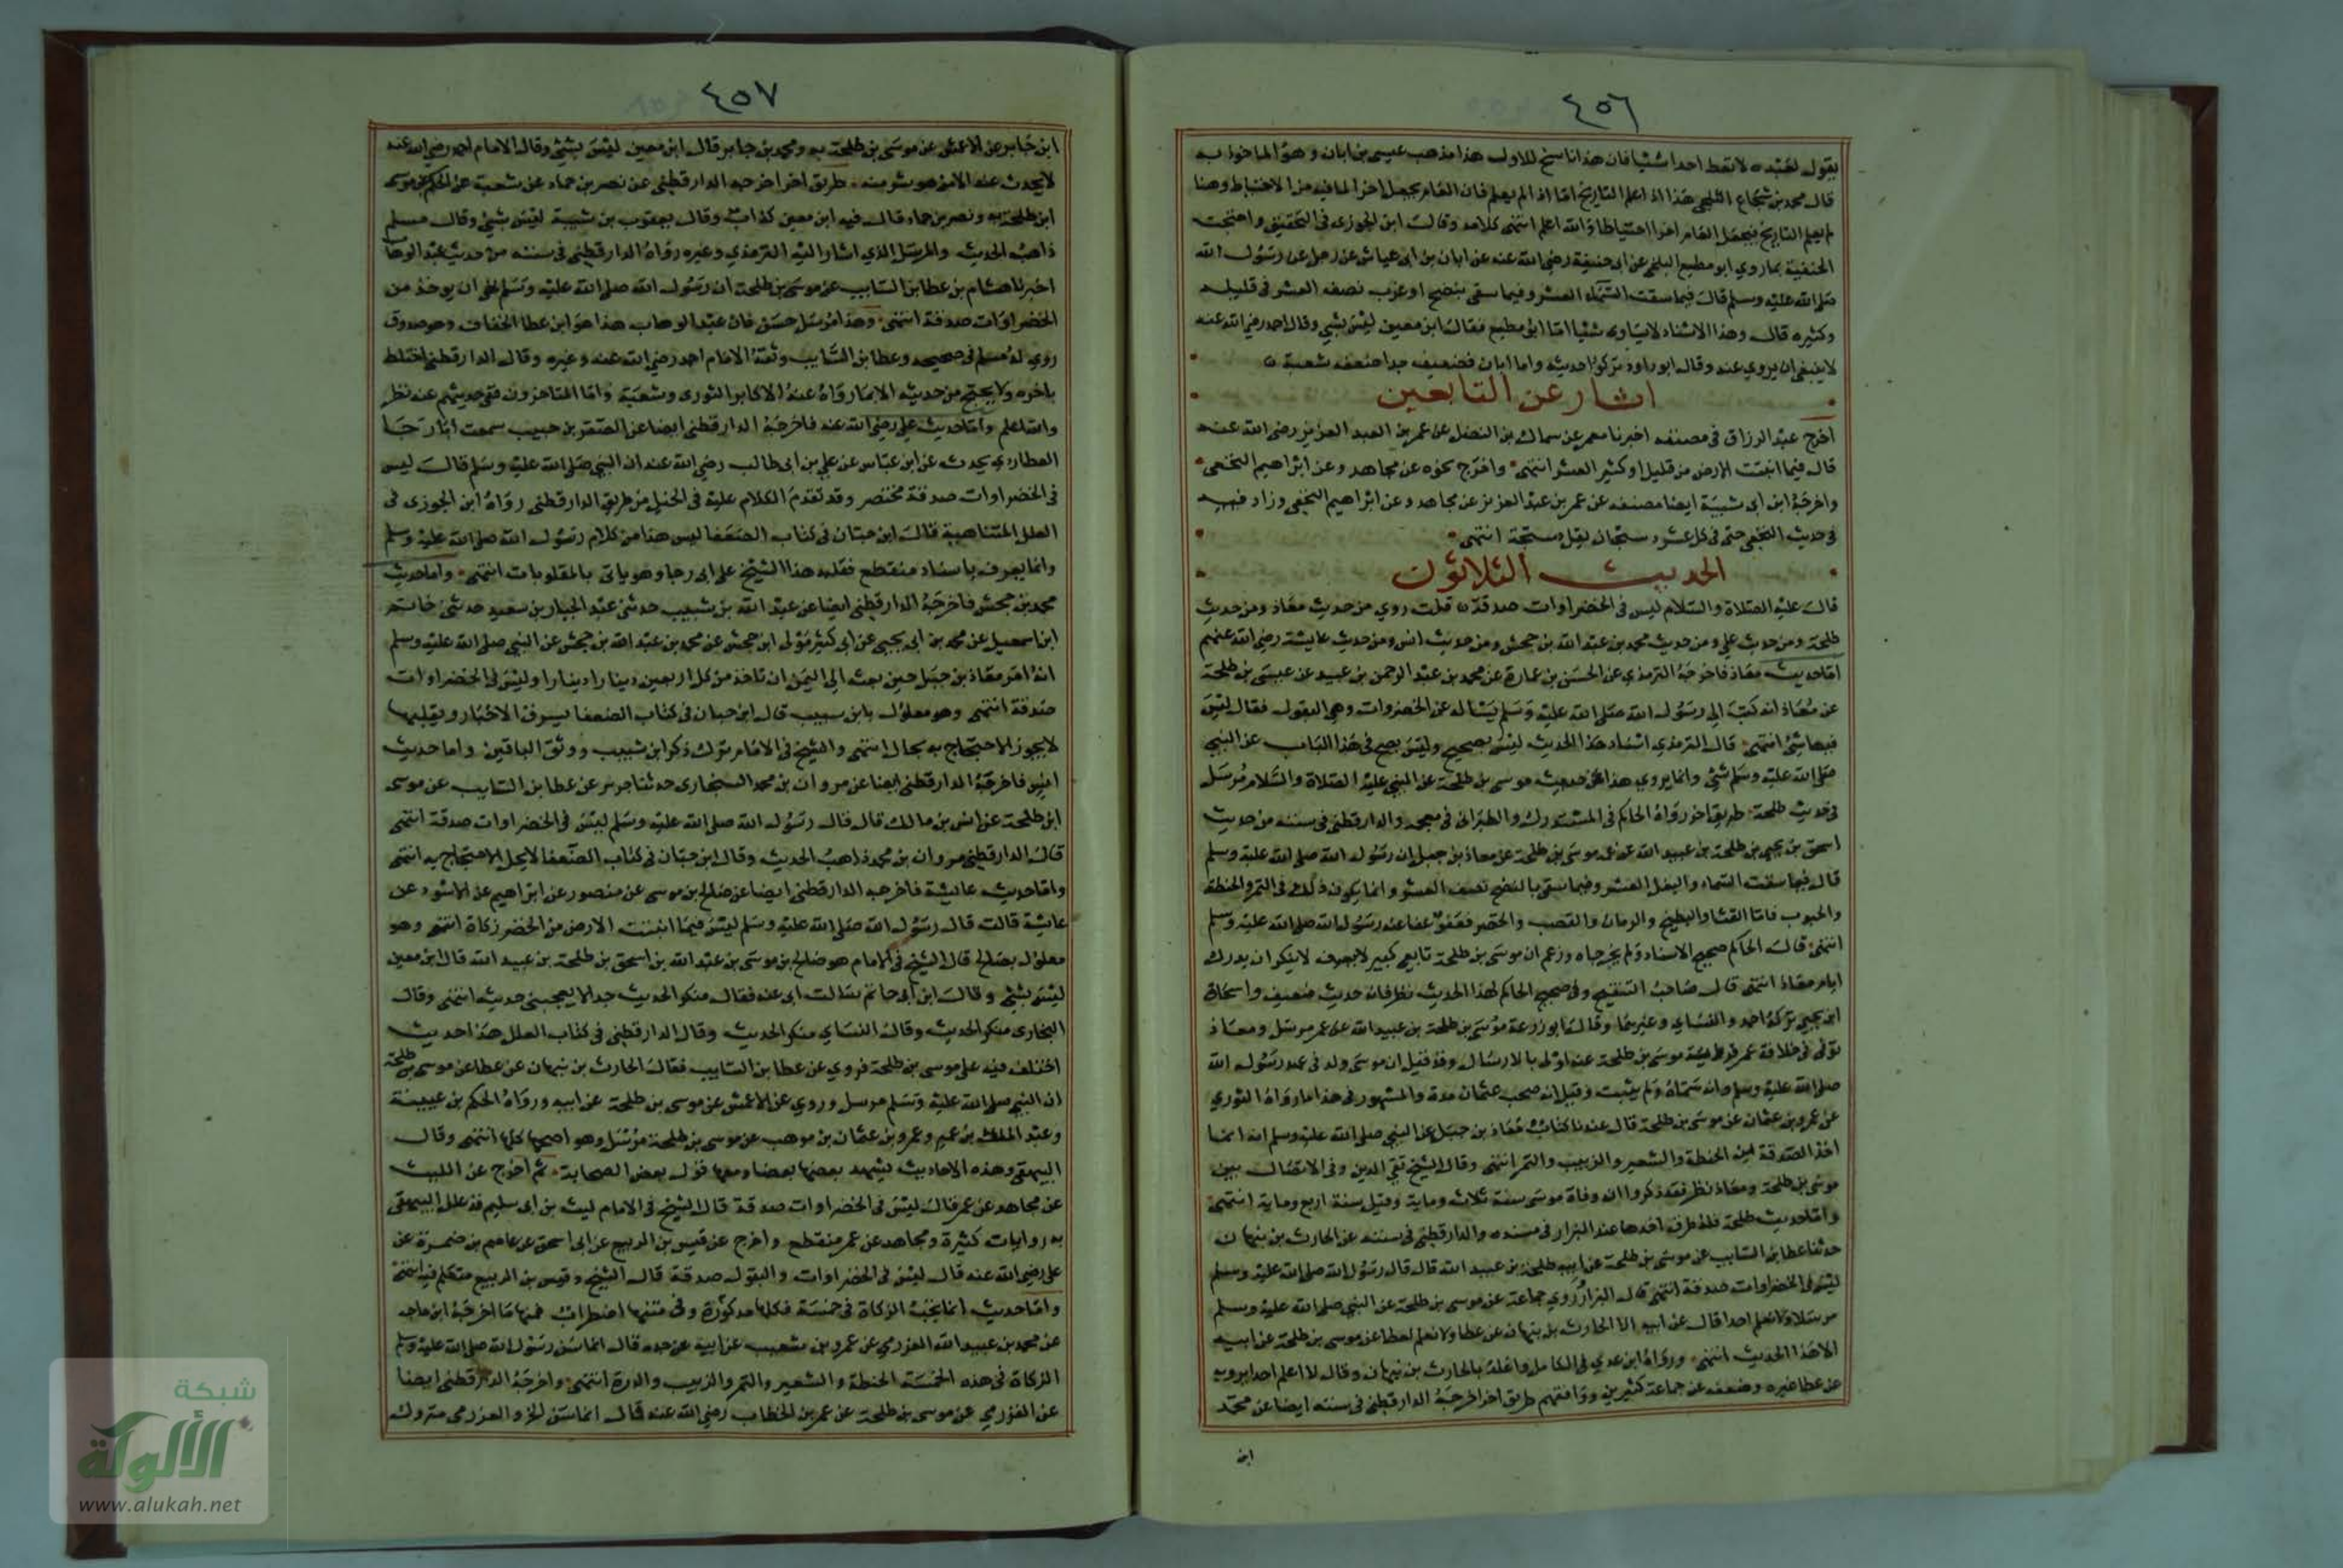 ٤٥٦
يقول لعبده لا تعط احدا شيئا فان هذا ناسخ للاول هذا مذهب عيسى بن ابان وهو الماخوذ به
قال محمد بن شجاع الثلجي هذا اذا علم التاريخ اما اذا لم يعلم فان العام يجعل اخرا لما فيه من الاحتياط وهنا
لم يعلم التاريخ فيجعل العام اخرا احتياطا والله اعلم انتهى كلامه وقال ابن الجوزى فى التحقيق واحتجت
الحنفية بما روي ابو مطيع البلخي عن ابى حنيفة رضي الله عنه عن ابان بن ابى عياش عن رجل عن رسول الله
صلى الله عليه وسلم قال فيما سقت السماء العشر وفيما سقى بنضح او غرب نصف العشر فى قليله
وكثيره قال وهذا الاسناد لا يساوى شيئا اما ابو مطيع فقال ابن معين ليس بشي وقال احمد رضي الله عنه
لا ينبغى ان يروي عنه وقال ابو داود تركوا حديثه واما ابان فضعيف جدا ضعفه شعبة
اثار عن التابعين
اخرج عبد الرزاق فى مصنفه اخبرنا معمر عن سماك بن الفضل عن عمر بن العبد العزيز رضى الله عنه
قال فيما انبتت الارض من قليل او كثير العشر انتهى واخرج نحوه عن مجاهد وعن ابراهيم النخعى
واخرجه ابن ابى شيبة ايضا مصنفه عن عمر بن عبد العزيز عن مجاهد وعن ابراهيم النخعى وزاد فيه
فى حديث النخعى حتى فى كل عشر دستجات بقل دستجة انتهى
الحديث الثلاثون
قال عليه الصلاة والسلام ليس فى الخضراوات صدقة قلت روي من حديث معاذ ومن حديث
طلحة ومن حديث علي ومن حديث محمد بن عبد الله بن جحش ومن حديث انس ومن حديث عايشة رضي الله عنهم
اما حديث معاذ فاخرجه الترمذي عن الحسن بن عمارة عن محمد بن عبد الرحمن بن عبيد عن عيسى بن طلحة
عن معاذ انه كتب الى رسول الله صلى الله عليه وسلم يسأله عن الخضروات وهي البقول فقال ليس
فيها شئ انتهى قال الترمذي اسناد هذا الحديث ليس بصحيح وليس يصح فى هذا الباب عن النبي
صلى الله عليه وسلم شئ وانما يروي هذا عن موسى بن طلحة عن النبي عليه الصلاة والسلام مرسل
فى حديث طلحة طريق اخر رواه الحاكم فى المستدرك والطبرانى فى معجمه والدارقطنى فى سننه من حديث
اسحق بن يحيى بن طلحة بن عبيد الله عن عمه موسى بن طلحة عن معاذ بن جبل ان رسول الله صلى الله عليه وسلم
قال فيما سقت السماء والبعل العشر وفيما سقى بالنضح نصف العشر وانما يكون ذلك فى التمر والحنطة
والحبوب فاما القثا والبطيخ والرمان والقصب والخضر فعفو عفا عنه رسول الله صلى الله عليه وسلم
انتهى قال الحاكم صحيح الاسناد ولم يخرجاه وزعم ان موسى بن طلحة تابعى كبير لا ينكر ان يدرك
ايام معاذ انتهى قال صاحب التنقيح وفى تصحيح الحاكم لهذا الحديث نظر فانه حديث ضعيف واسحاق
ابن يحيى تركه احمد والنسائي وغيرهما وقال ابو زرعة موسى بن طلحة بن عبيد الله عن عمر مرسل ومعاذ
توفى فى خلافة عمر فرواية موسى بن طلحة عنه اولى بالارسال وقد قيل ان موسى ولد فى عهد رسول الله
صلى الله عليه وسلم وانه سماه ولم يثبت وقيل انه صحب عثمان مدة والمشهور فى هذا ما رواه الثوري
عن عمرو بن عثمان عن موسى بن طلحة قال عندنا كتاب معاذ بن جبل عن النبي صلى الله عليه وسلم انه انما
اخذ الصدقة من الحنطة والشعير والزبيب والتمر انتهى وقال الشيخ تقي الدين وفى الاتصال بين
موسى بن طلحة ومعاذ نظر فقد ذكروا ان وفاة موسى سنة ثلاث وماية وقيل سنة اربع وماية انتهى
واما حديث طلحة فله طرق احدها عند البزار فى مسنده والدارقطنى فى سننه عن الحارث بن نبهان
حدثنا عطا بن السايب عن موسى بن طلحة عن ابيه طلحة بن عبيد الله قال قال رسول الله صلى الله عليه وسلم
ليس فى الخضراوات صدقة انتهى قال البزار وروي جماعة عن موسى بن طلحة عن النبي صلى الله عليه وسلم
مرسلا ولا نعلم احدا قال عن ابيه الا الحارث بن نبهان عن عطا ولا نعلم لعطا عن موسى بن طلحة عن ابيه
الا هذا الحديث انتهى ورواه ابن عدي فى الكامل واعله بالحارث بن نبهان وقال لا اعلم احدا يرويه
عن عطا غيره وضعفه عن جماعة كثيرين ووافقهم طريق اخر اخرجه الدارقطنى فى سننه ايضا عن محمد
ابن
٤٥٧
ابن جابر عن الاعمش عن موسى بن طلحة به ومحمد بن جابر قال ابن معين ليس بشئ وقال الامام احمد رضي الله عنه
لا يحدث عنه الا من هو شر منه طريق اخر اخرجه الدارقطنى عن نصر بن حماد عن شعبة عن الحكم عن موسى
ابن طلحة به ونصر بن حماد قال فيه ابن معين كذاب وقال يعقوب بن شيبة ليس بشئ وقال مسلم
ذاهب الحديث والمرسل الذي اشار اليه الترمذي وغيره رواه الدارقطنى فى سننه من حديث عبد الوهاب
اخبرنا هشام بن عطا بن السايب عن موسى بن طلحة ان رسول الله صلى الله عليه وسلم نهى ان يوخذ من
الخضراوات صدقة انتهى وهذا مرسل حسن فان عبد الوهاب هذا هو ابن عطا الخفاف وهو صدوق
روي له مسلم فى صحيحه وعطا بن السايب وثقه الامام احمد رضي الله عنه وغيره وقال الدارقطنى اختلط
باخره ولا يحتج من حديثه الا بما رواه عنه الاكابر الثورى وشعبة واما المتاخرون ففى حديثهم عنه نظر
والله اعلم واما حديث على رضي الله عنه فاخرجه الدارقطنى ايضا عن الصقر بن حبيب سمعت ابا رجا
العطاردي يحدث عن ابن عباس عن علي بن ابى طالب رضي الله عنه ان النبي صلى الله عليه وسلم قال ليس
فى الخضراوات صدقة مختصر وقد تقدم الكلام عليه فى الخيل من طريق الدارقطنى رواه ابن الجوزى فى
العلل المتناهية قال ابن حبان فى كتاب الضعفا ليس هذا من كلام رسول الله صلى الله عليه وسلم
وانما يعرف باسناد منقطع فقلبه هذا الشيخ على ابى رجا وهو ياتى بالمقلوبات انتهى واما حديث
محمد بن جحش فاخرجه الدارقطنى ايضا عن عبد الله بن شبيب حدثنى عبد الجبار بن سعيد حدثنى حاتم
ابن اسمعيل عن محمد بن ابى يحيى عن ابى كثير مولى ابن جحش عن محمد بن عبد الله بن جحش عن النبي صلى الله عليه وسلم
انه امر معاذ بن جبل حين بعثه الى اليمن ان تاخذ من كل اربعين دينارا دينارا وليس فى الخضراوات
صدقة انتهى وهو معلول بابن شبيب قال ابن حبان فى كتاب الضعفا يسرق الاخبار ويقلبها
لا يجوز الاحتجاج به بحال انتهى والشيخ فى الامام ترك ذكر ابن شبيب ووثق الباقين واما حديث
انس فاخرجه الدارقطنى ايضا عن مروان بن محمد السنجارى حدثنا جرير عن عطا بن السايب عن موسى
ابن طلحة عن انس بن مالك قال قال رسول الله صلى الله عليه وسلم ليس فى الخضراوات صدقة انتهى
قال الدارقطنى مروان بن محمد ذاهب الحديث وقال ابن حبان فى كتاب الضعفا لا يحل الاحتجاج به انتهى
واما حديث عايشة فاخرجه الدارقطنى ايضا عن صالح بن موسى عن منصور عن ابراهيم عن الاسود عن
عائشة قالت قال رسول الله صلى الله عليه وسلم ليس فيما انبتت الارض من الخضر زكاة انتهى وهو
معلول بصالح قال الشيخ فى الامام هو صالح بن موسى بن عبد الله بن اسحق بن طلحة بن عبيد الله قال ابن معين
ليس بشئ وقال ابن ابى حاتم سالت ابى عنه فقال منكر الحديث جدا لا يعجبنى حديثه انتهى وقال
البخارى منكر الحديث وقال النسائي منكر الحديث وقال الدارقطنى فى كتاب العلل هذا حديث
اختلف فيه على موسى بن طلحة فروي عن عطا بن السايب فقال الحارث بن نبهان عن عطا عن موسى بن طلحة
ان النبي صلى الله عليه وسلم مرسل وروي عن الاعمش عن موسى بن طلحة عن ابيه ورواه الحكم بن عيينة
وعبد الملك بن عمير وعمرو بن عثمان بن موهب عن موسى بن طلحة مرسل وهو اصحها كلها انتهى وقال
البيهقى وهذه الاحاديث يشهد بعضها بعضا ومعها قول بعض الصحابة ثم اخرج عن الليث
عن مجاهد عن عمر قال ليس فى الخضراوات صدقة قال الشيخ فى الامام ليث بن ابى سليم قد علل البيهقى
به روايات كثيرة ومجاهد عن عمر منقطع واخرج عن قيس بن الربيع عن ابى اسحق عن عاصم بن ضمرة عن
على رضي الله عنه قال ليس فى الخضراوات والبقول صدقة قال الشيخ وقيس بن الربيع متكلم فيه انتهى
واما حديث انما يجب الزكاة فى خمسة فكلها مدكورة وفى متنها اضطراب فمنها ما اخرجه ابن ماجه
عن محمد بن عبيد الله العزرمى عن عمرو بن شعيب عن ابيه عن جده قال انما سن رسول الله صلى الله عليه وسلم
الزكاة فى هذه الخمسة الحنطة والشعير والتمر والزبيب والذرة انتهى واخرجه الدارقطنى ايضا
عن العزرمي عن موسى بن طلحة عن عمر بن الخطاب رضي الله عنه قال انما سن الخ والعزرمى متروك
شبكة
الألوكة
www.alukah.net